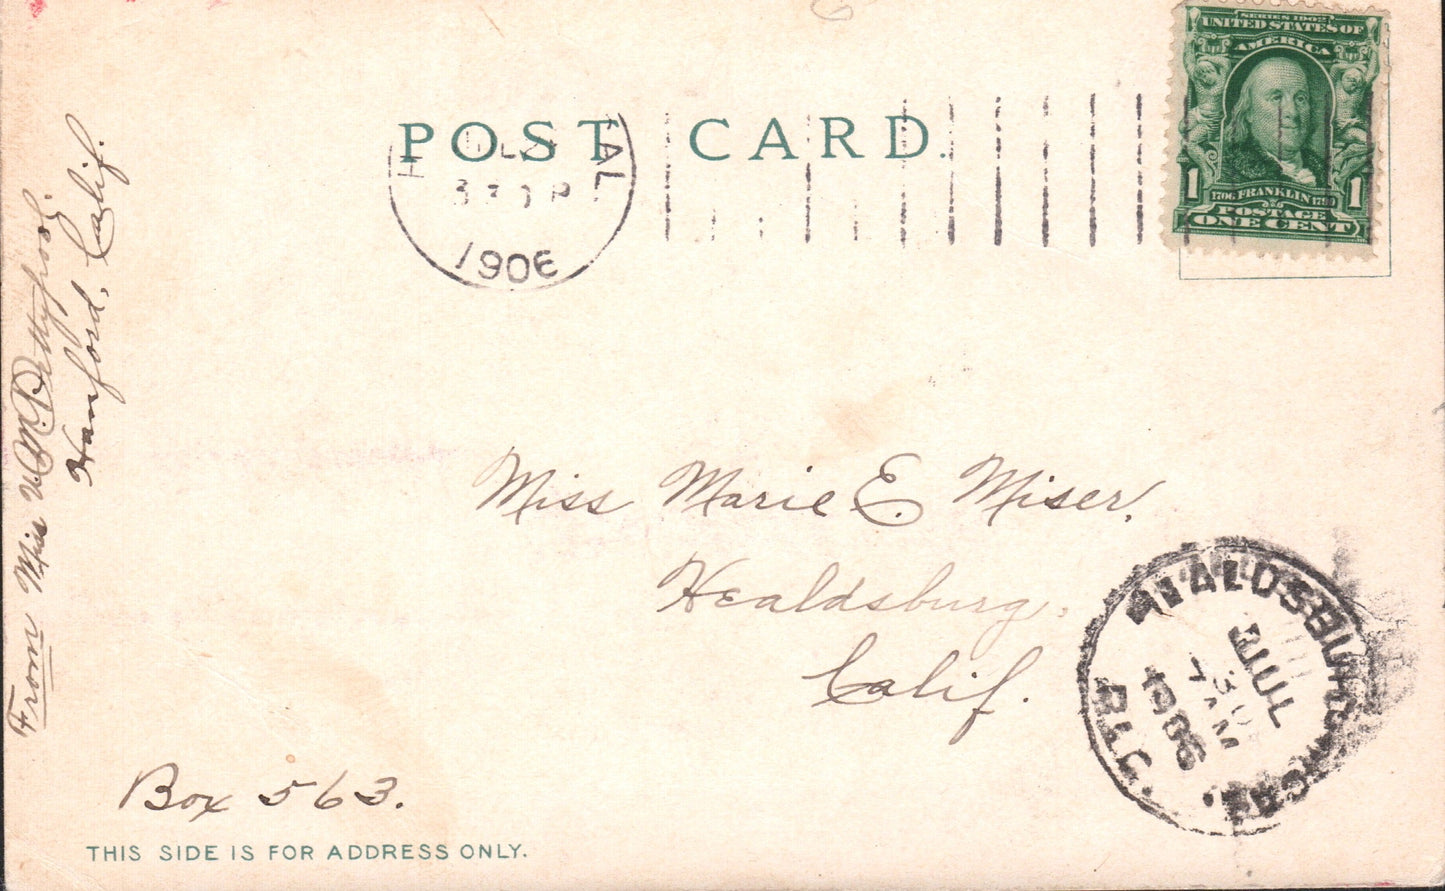 POST CARD.
SERIES 1902
UNITED STATES OF
AMERICA
1 1706 FRANKLIN 1790 1
POSTAGE
ONE CENT
CAL
330 P
1906
From Miss
Hanford, Calif.
Miss Marie E. Miser,
Healdsburg,
Calif.
HEALDSBURG, CAL.
JUL
30
7 AM
1906
REC'D
Box 563.
THIS SIDE IS FOR ADDRESS ONLY.